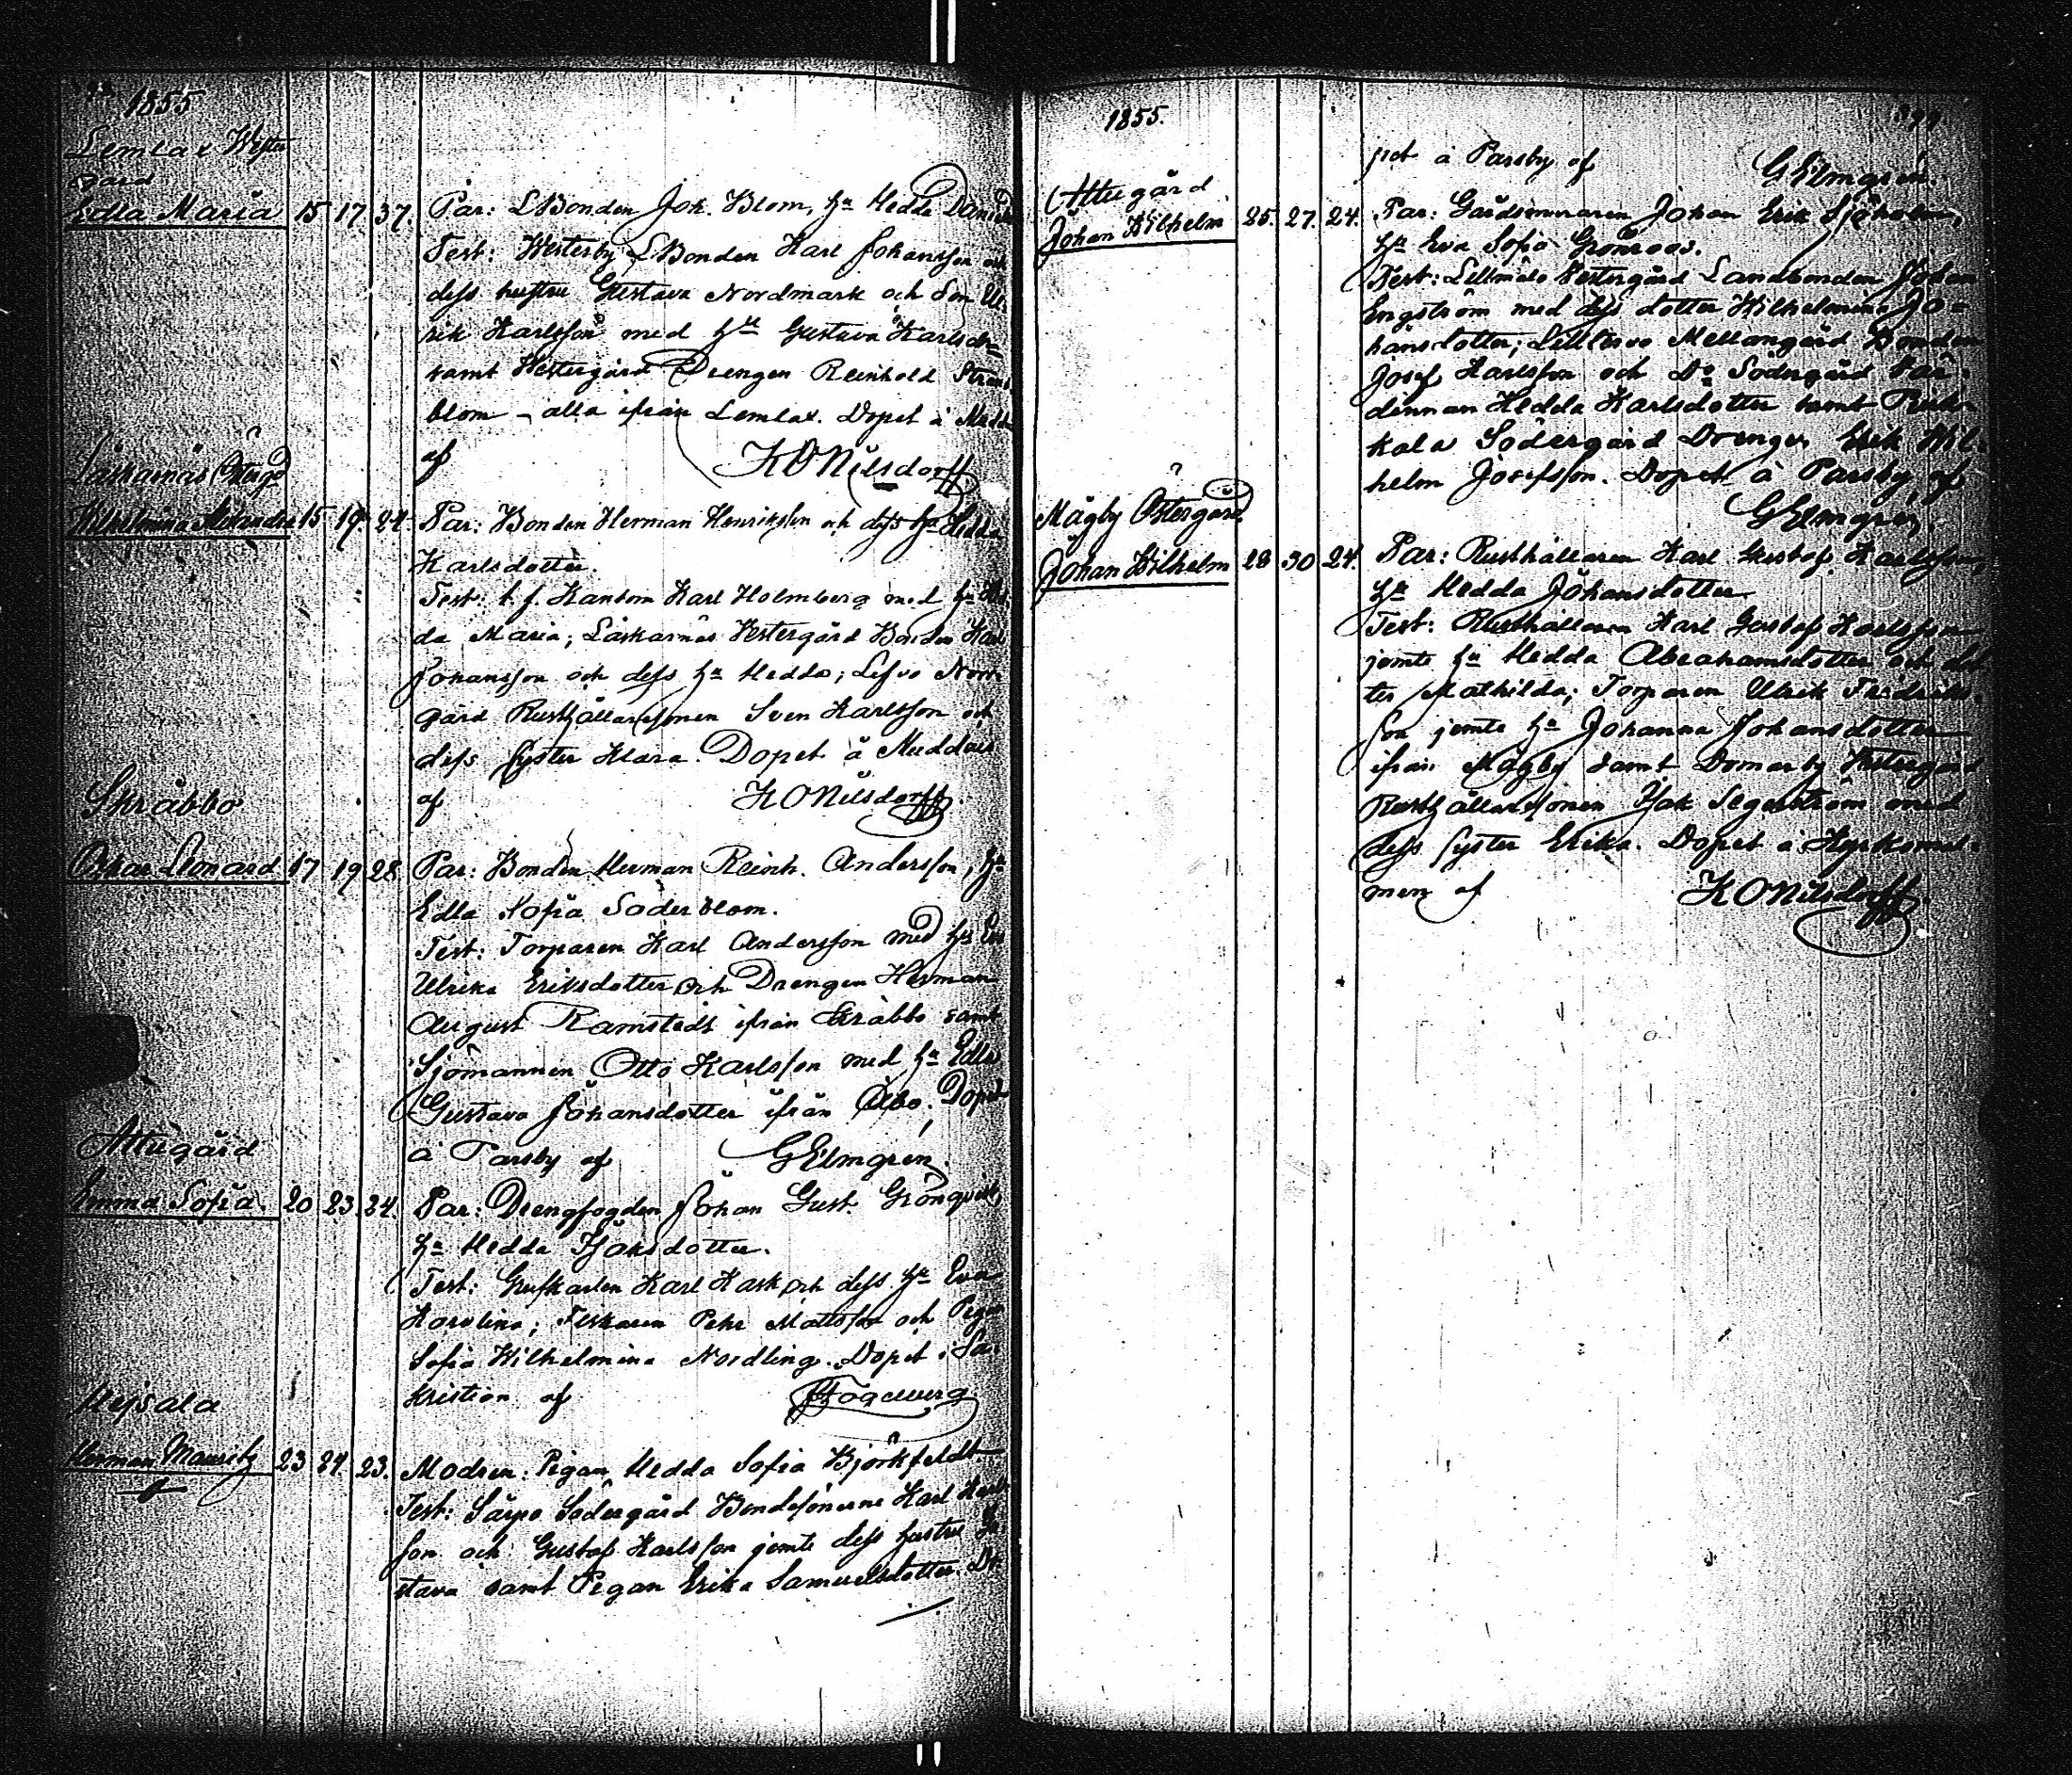 1855
Lemlax Wester
gård
Edla Maria 15 17 37. Par: LBonden Joh. Blom, hu Hedda Daniels
Test: Westerby LBonden Karl Johansson och
dess hustru Gustava Nordmark och Son Ul
rik Karlsson med hu Gustava Karlsdr
samt Westergård Drengen Reinhold Strand
blom – alla ifrån Lemlax. Dopet å
af KONilsdorff
Låskarnäs
Wilhelmina Alexandra 15 19 24. Par: Bonden Herman Henriksson och dess hu Hedda
Karlsdotter.
Test: t. f. Kantorn Karl Holmberg med hu
da Maria; Låskarnäs Westergård Bonden Karl
Johansson och dess hu Hedda; Lofvo Norr
gård Rusthållaresonen Sven Karlsson och
dess syster Klara. Dopet å Muddais
af KONilsdorff.
Skräbbo
Oskar Leonard 17 19 28 Par: Bonden Herman Reinh. Andersson, hu
Edla Sofia Söderblom.
Test: Torparen Karl Andersson med hu Eva
Ulrika Eriksdotter och Drengen Herman
August Ramstedt ifrån Skräbbo samt
Sjömannen Otto Karlsson med hu Edla
Gustava Johansdotter ifrån Åbo. Dopet
å Parsby af GElmgren.
Attugård
Emma Sofia. 20 23 24. Par: Drengfogden Johan Gust. Grönqvist,
hu Hedda Isaksdotter.
Test: Grufkarlen Karl Kask och dess hu Eva
Karolina; Fiskaren Pehr Mattsson och Pigan
Sofia Wilhelmina Nordling. Dopet i Sa
kristian af
Mejsala
Herman Mauritz 23 24 23. Modren: Pigan Hedda Sofia Björkfeldt.
Test: Särpo Södergård Bondesönerne Karl Karls
son och Gustaf Karlsson jemte dess hustru Gu
stava samt Pigan Erika Samuelsdotter. Do
1855.
pet å Parsby af GElmgren.
Attugård
Johan Wilhelm 25. 27. 24. Par: Gårdsmuraren Johan Erik Sjöholm,
hu Eva Sofia Grönroos.
Test: Lillmälö Westergård Landbonden Johan
Engström med dess dotter Wilhelmina Jo=
hansdotter; Lilltervo Mellangård Bonden
Josef Karlsson och Do Södergård Vär=
dinnan Hedda Karlsdotter samt
kala Södergård Drengen Erik Wil=
helm Josefsson. Dopet å Parsby af
GElmgren.
Mågby Östergård
Johan Wilhelm 28 30 24. Par: Rusthållaren Karl Gustaf Karlsson,
hu Hedda Johansdotter
Test: Rusthållaren Karl Gustaf Karlsson
jemte hu Hedda Abrahamsdotter och dot
ter Mathilda; Torparen Ulrik Fridriks=
son jemte hu Johanna Johansdotter
ifrån Mågby samt Domarby Westergård
Rusthållaresonen Isak Segerström med
dess syster Erika. Dopet i Kyrkoned=
men af KONilsdorff.